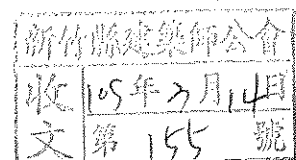 新竹縣建築師公會
收文
105年3月14日
第 155 號